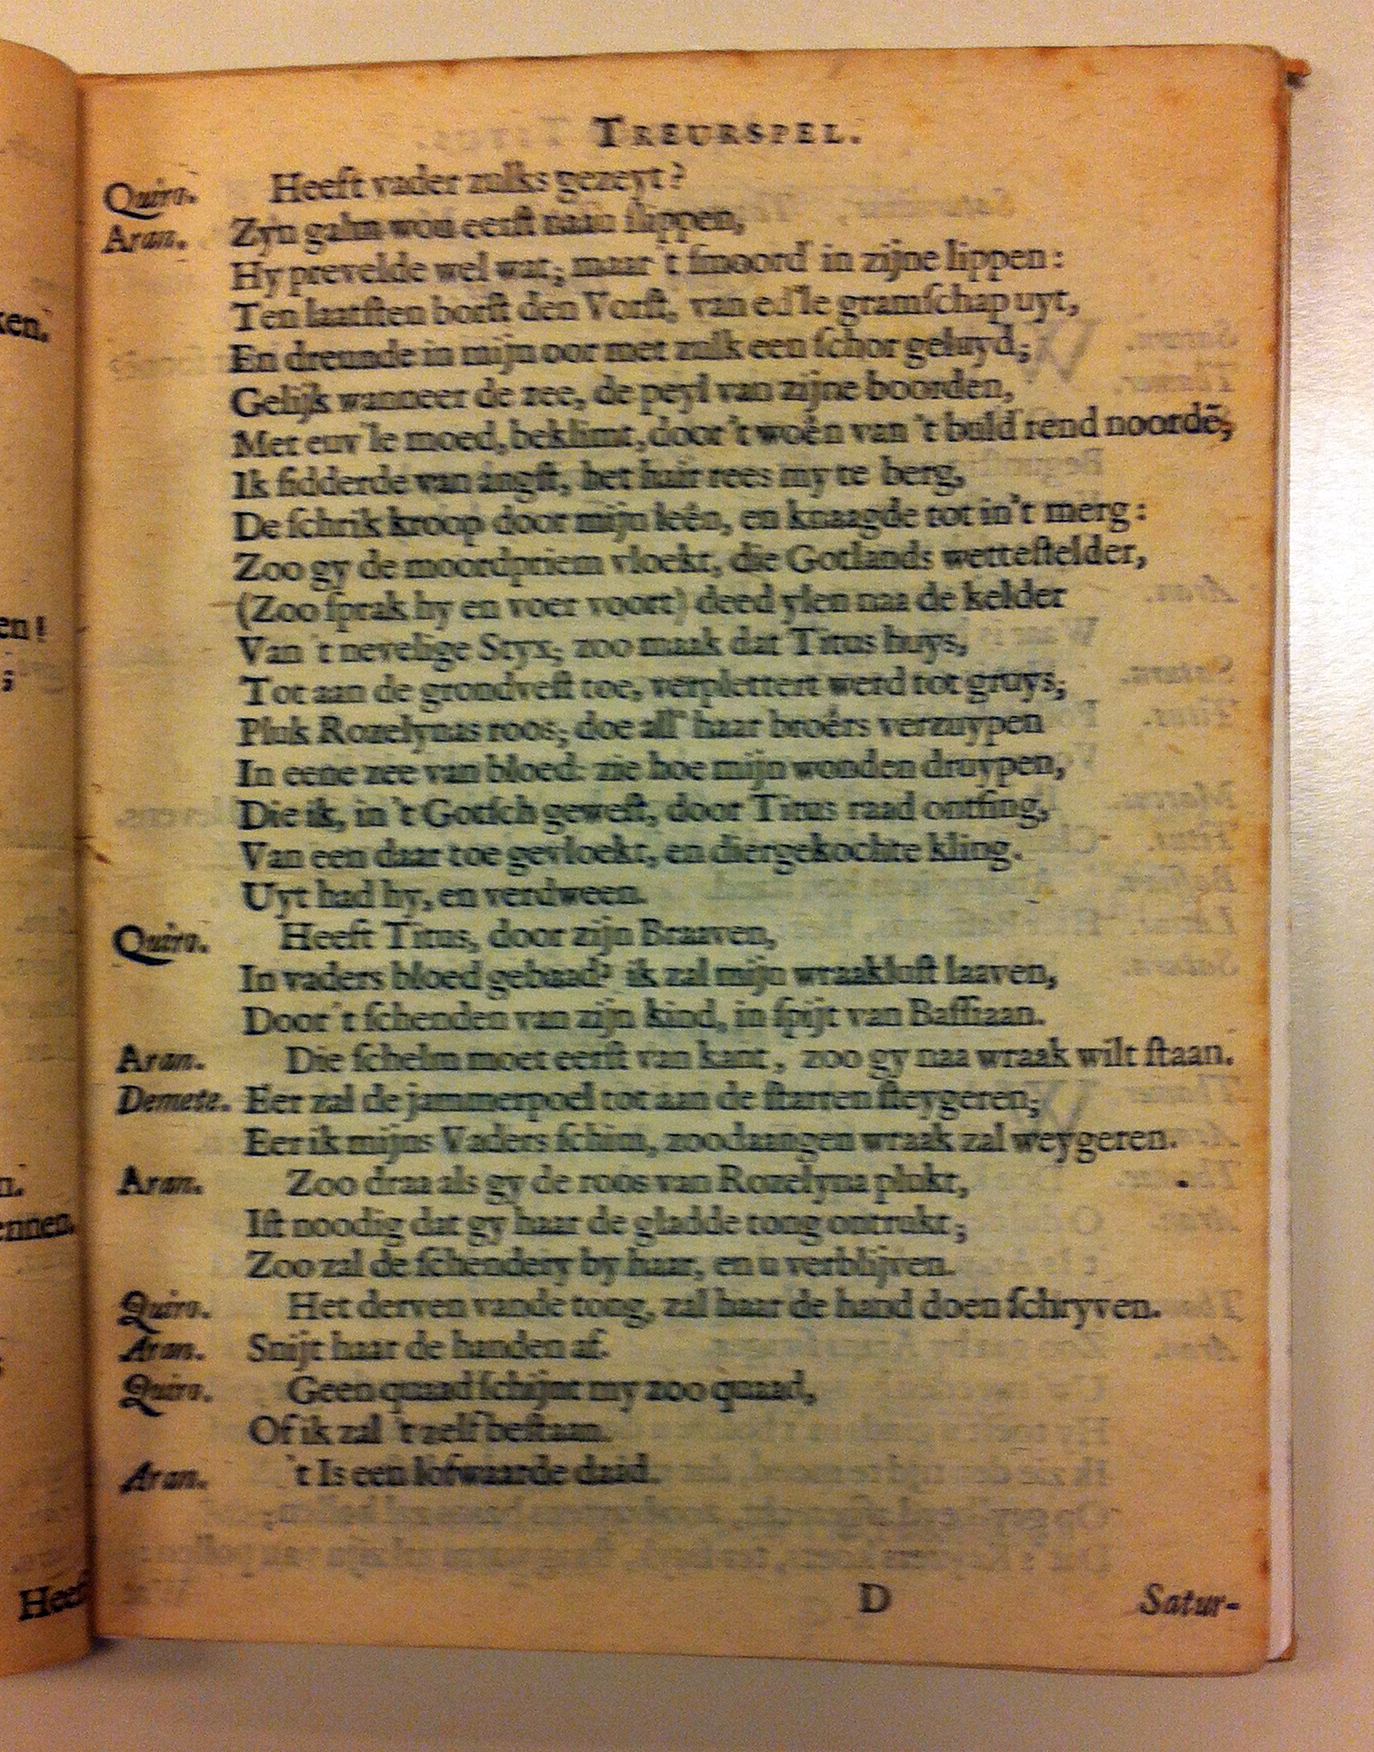 TREURSPEL.
Quiro. Heeft vader zulks gezeyt?
Aran. Zyn galm wou eerst naau slippen,
Hy prevelde wel wat, maar 't smoord' in zijne lippen:
Ten laatsten borst den Vorst, van ed'le gramschap uyt,
En dreunde in mijn oor met zulk een schor geluyd;
Gelijk wanneer de zee, de peyl van zijne boorden,
Met euv'le moed, beklimt, door 't woên van 't buld'rend noordẽ;
Ik sidderde van angst, het hair rees my te berg,
De schrik kroop door mijn leên, en knaagde tot in't merg:
Zoo gy de moordpriem vloekt, die Gotlands wettestelder,
(Zoo sprak hy en voer voort) deed ylen naa de kelder
Van 't nevelige Styx; zoo maak dat Titus huys,
Tot aan de grondvest toe, verplettert werd tot gruys;
Pluk Rozelynas roos; doe all' haar broêrs verzuypen
In eene zee van bloed: zie hoe mijn wonden druypen,
Die ik, in 't Gotsch gewest, door Titus raad ontfing,
Van een daar toe gevloekt, en diergekochte kling.
Uyt had hy, en verdween.
Quiro. Heeft Titus, door zijn Braaven,
In vaders bloed gebaad? ik zal mijn wraaklust laaven,
Door 't schenden van zijn kind, in spijt van Bassiaan.
Aran. Die schelm moet eerst van kant, zoo gy naa wraak wilt staan.
Demete. Eer zal de jammerpoel tot aan de starren steygeren;
Eer ik mijns Vaders schim, zoodaangen wraak zal weygeren.
Aran. Zoo draa als gy de roos van Rozelyna plukt,
Ist noodig dat gy haar de gladde tong ontrukt;
Zoo zal de schendery by haar, en u verblijven.
Quiro. Het derven vande tong, zal haar de hand doen schryven.
Aran. Snijt haar de handen af.
Quiro. Geen quaad schijnt my zoo quaad,
Of ik zal 't zelf bestaan.
Aran. 't Is een lofwaarde daad.
D Satur-